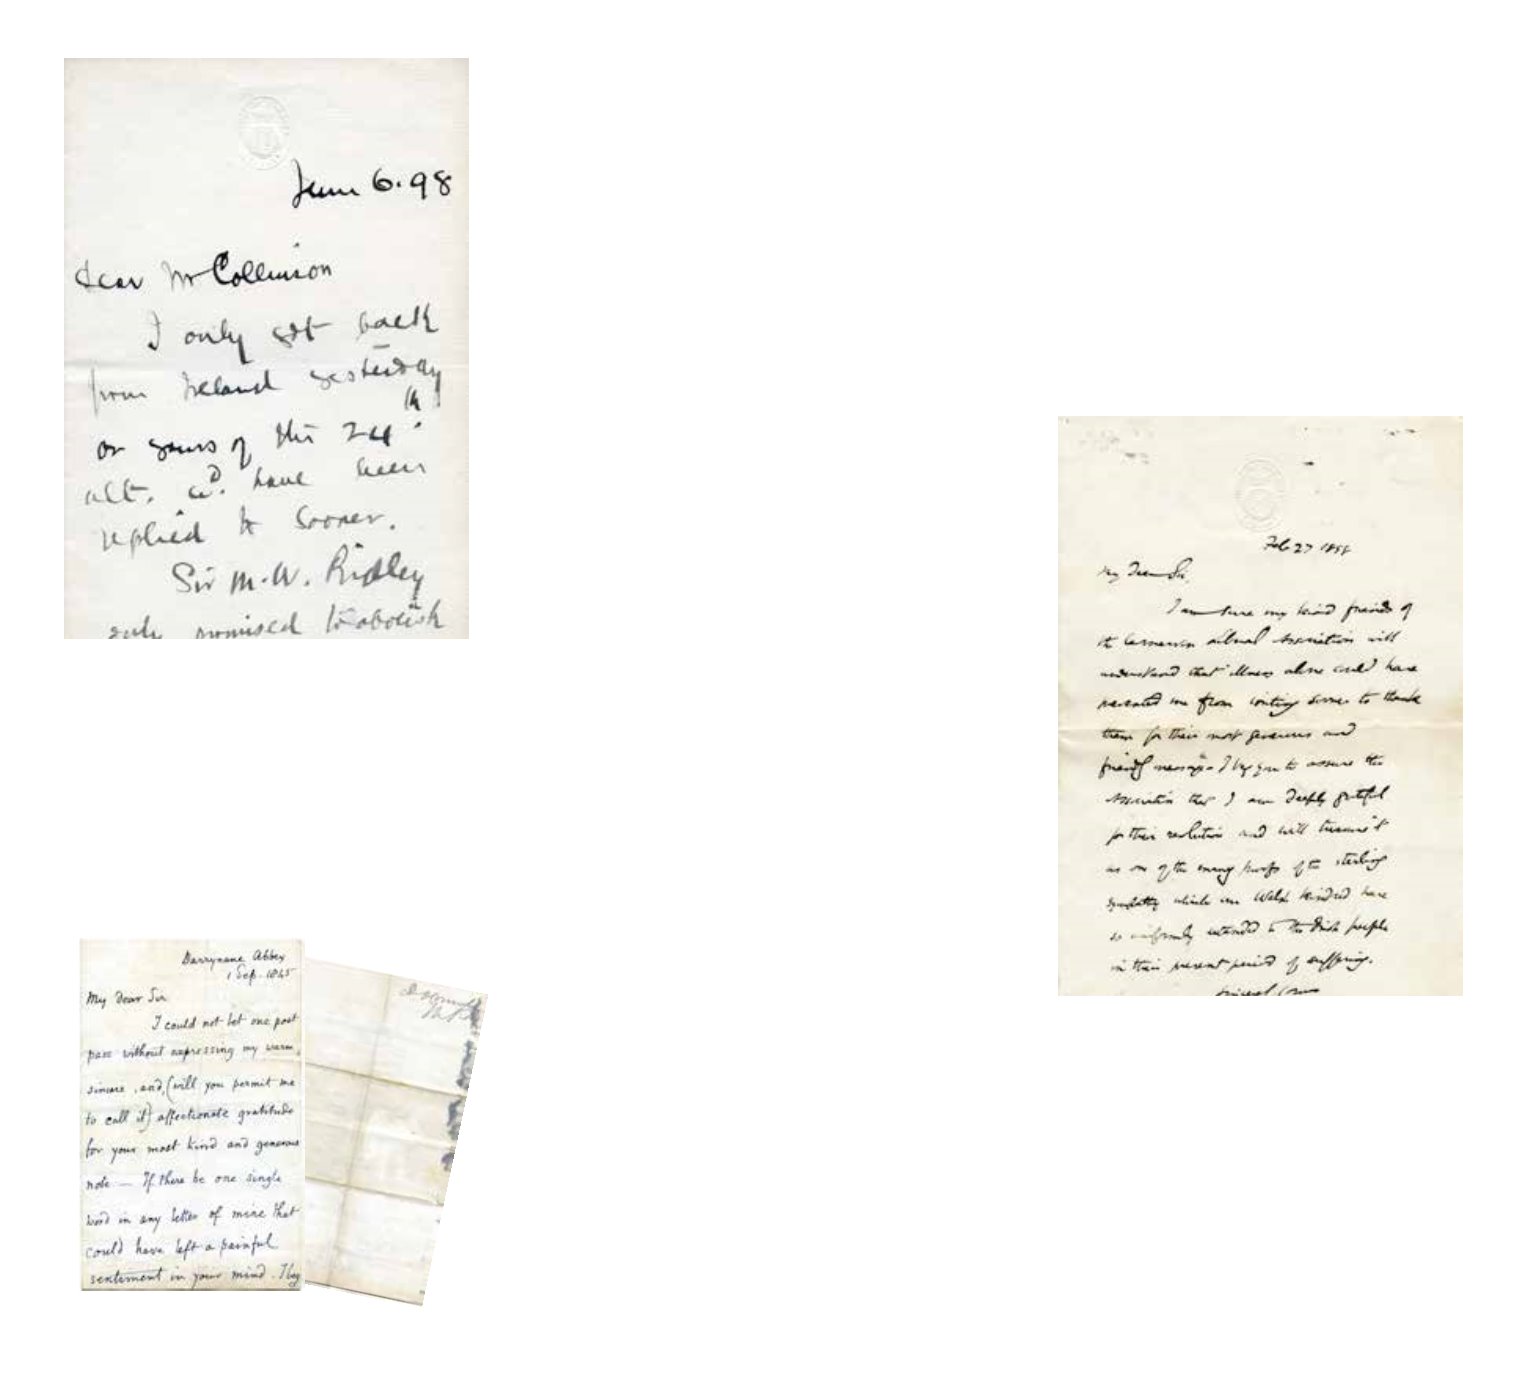 June 6. 98
dear Mr Collinson
I only got back
from Ireland yesterday
or yours of the 24th
ult. wd. have been
replied to sooner.
Sir M.W. Ridley
only promised to abolish
Feb 27 1888
My Dear Sir,
I am sure my kind friends of
the Carnarvon Liberal Association will
understand that illness alone could have
prevented me from writing sooner to thank
them for their most generous and
friendly message. I beg you to assure the
Association that I am deeply grateful
for their resolution and will treasure it
as one of the many proofs of the sterling
sympathy which our Welsh kindred have
so uniformly extended to the Irish people
in their present period of suffering.
Darrynane Abbey
1 Sep. 1845
My Dear Sir
I could not let one post
pass without expressing my warm,
sincere, and, (will you permit me
to call it) affectionate gratitude
for your most kind and generous
note — If there be one single
word in any letter of mine that
could have left a painful
sentiment in your mind. I beg